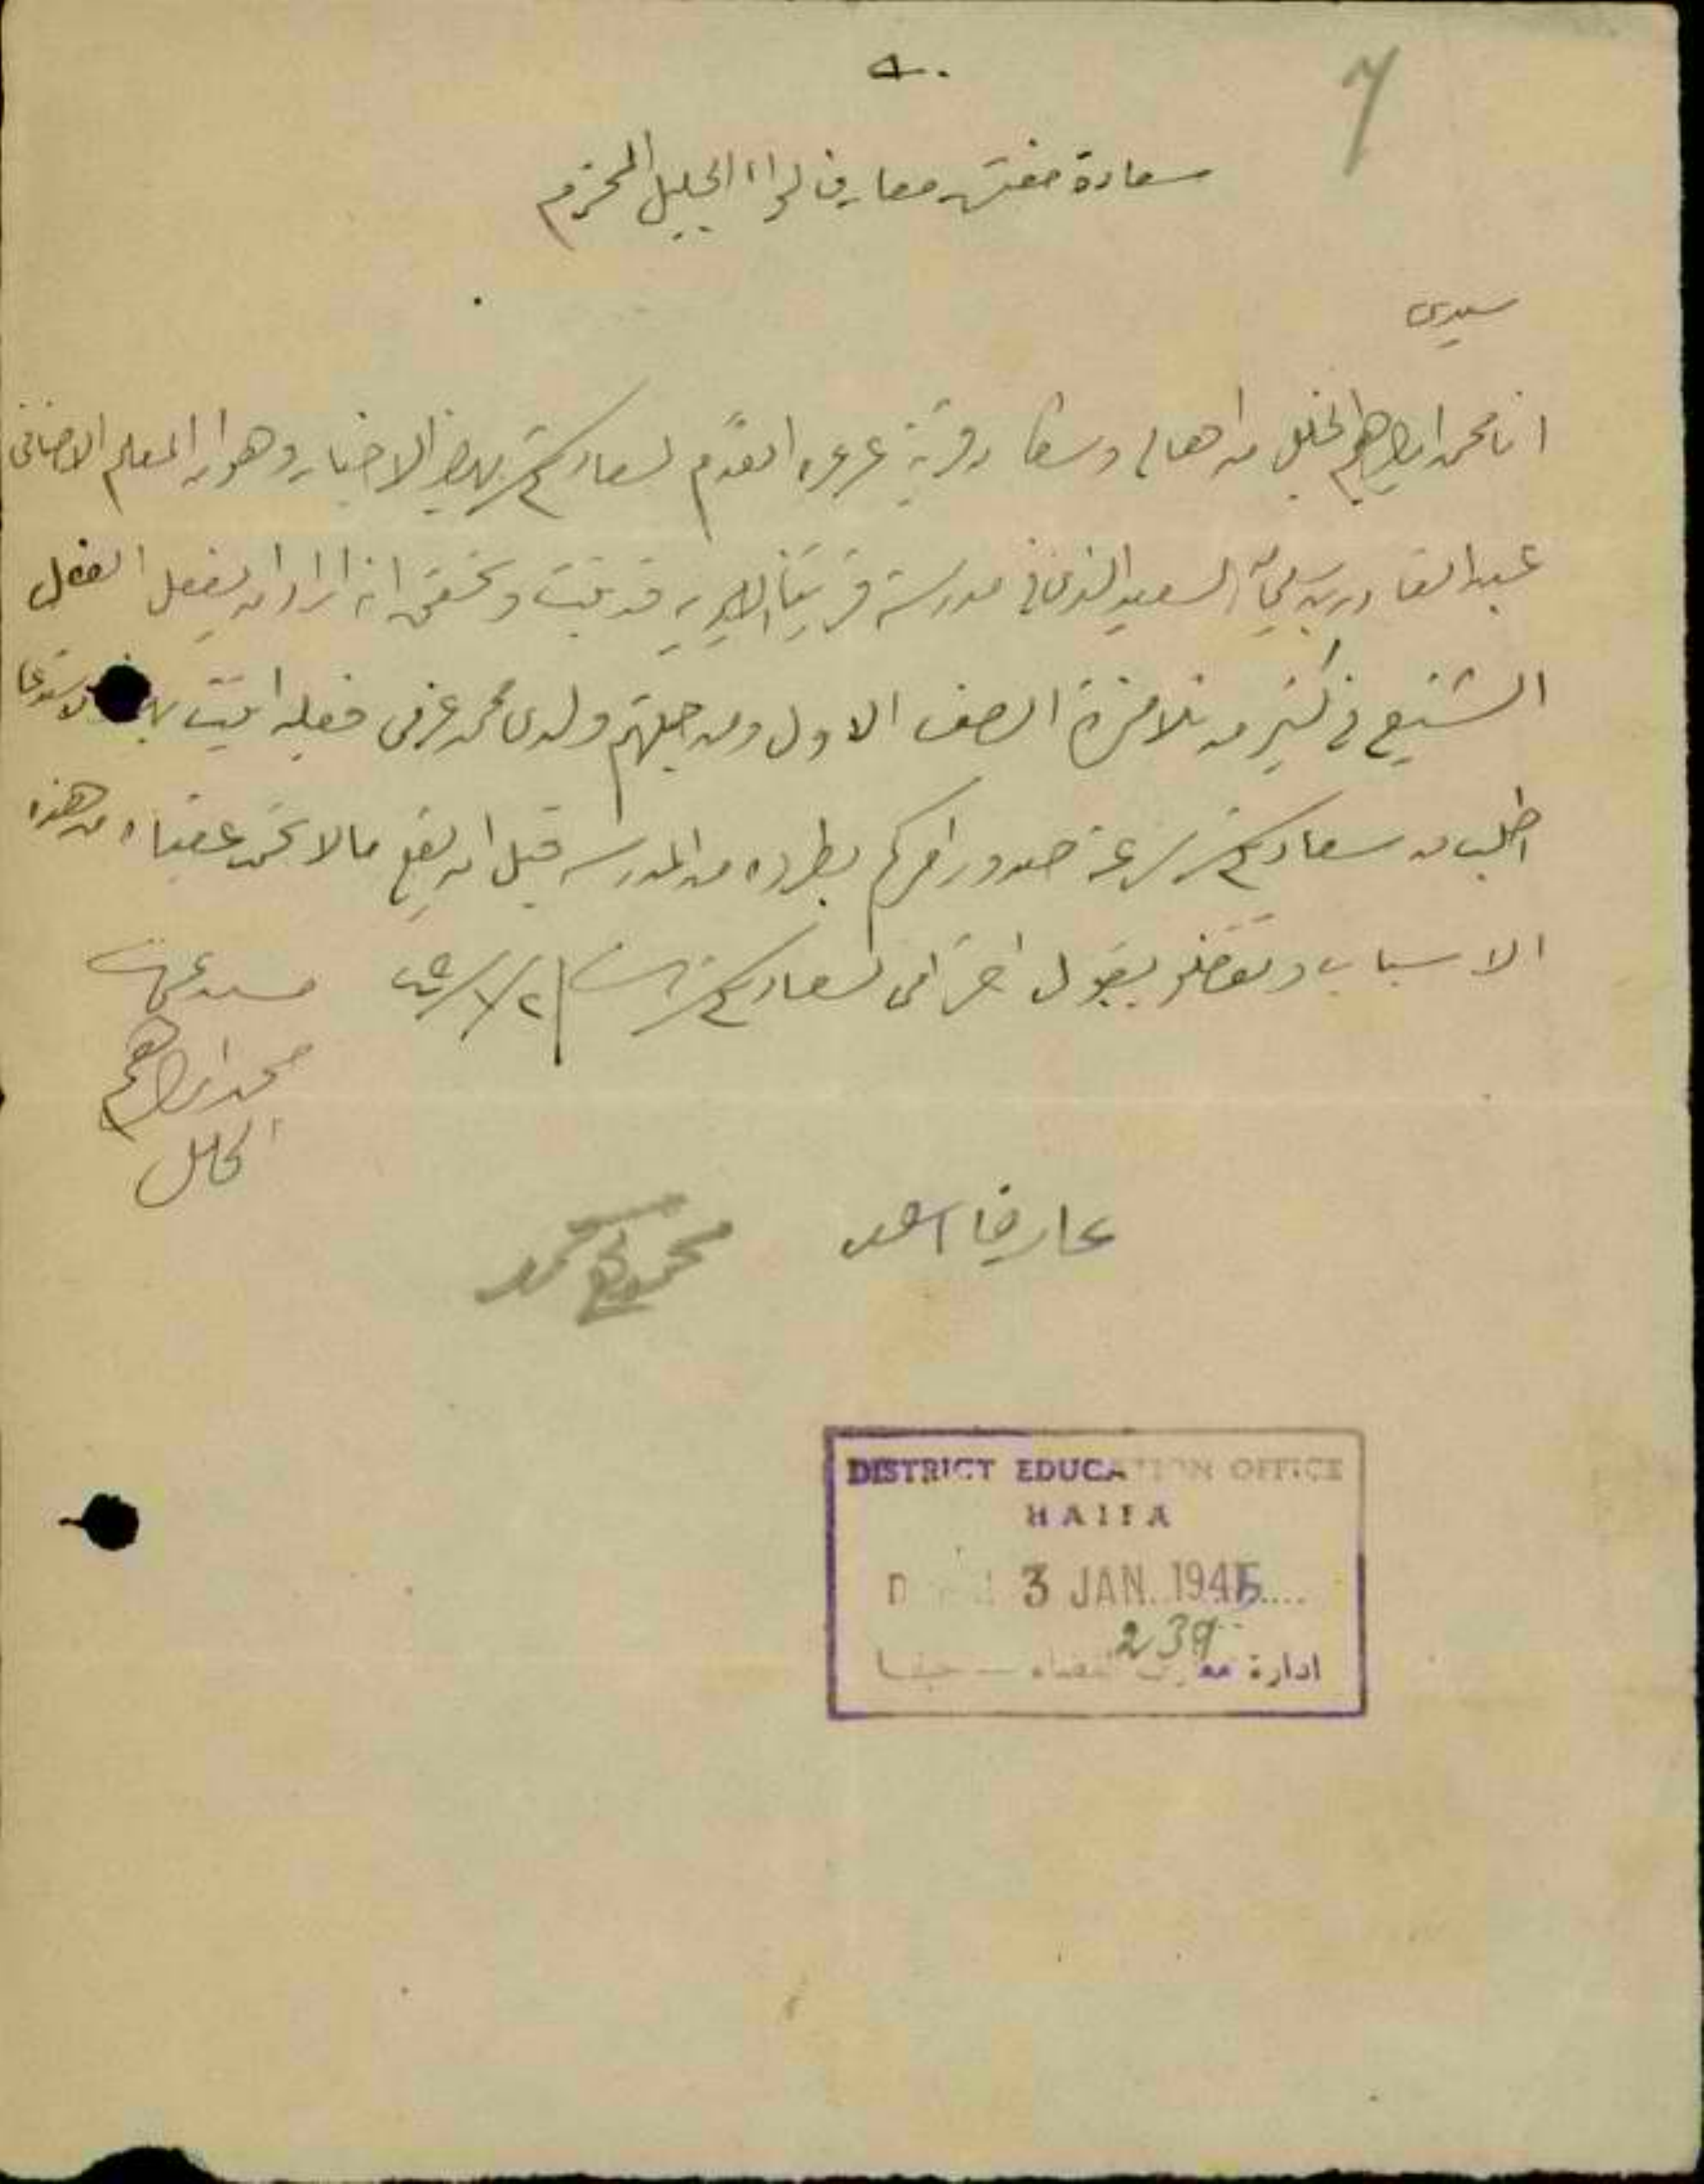 7
سعادة مفتش معارف لواء الجليل المحترم
سيدي
انا محمد ابراهيم من اهالي وسكان قرية عرعره اتقدم لسعادتكم بهذا الاخبار وهو ان المعلم الاضافي
عبد القادر السعيد الذي في مدرسة قريتنا قد ثبت وتحقق انه اراد ان يفعل الفعل
الشنيع في كثير من تلامذة الصف الاول ومن جملتهم ولدي محمد عزمي فعليه اتيت
اطلب من سعادتكم سرعة صدور امركم بطرده من المدرسه قبل ان يقع ما لا تحمد عقباه من هذه
الاسباب وتفضلو بقبول احترامي لسعادتكم ٢/١/٤٥ مستدعي
محمد ابراهيم
كامل
عارف اسعد
محمد
DISTRICT EDUCATION OFFICE
HAIFA
3 JAN. 1945
239
ادارة معارف قضاء - حيفا